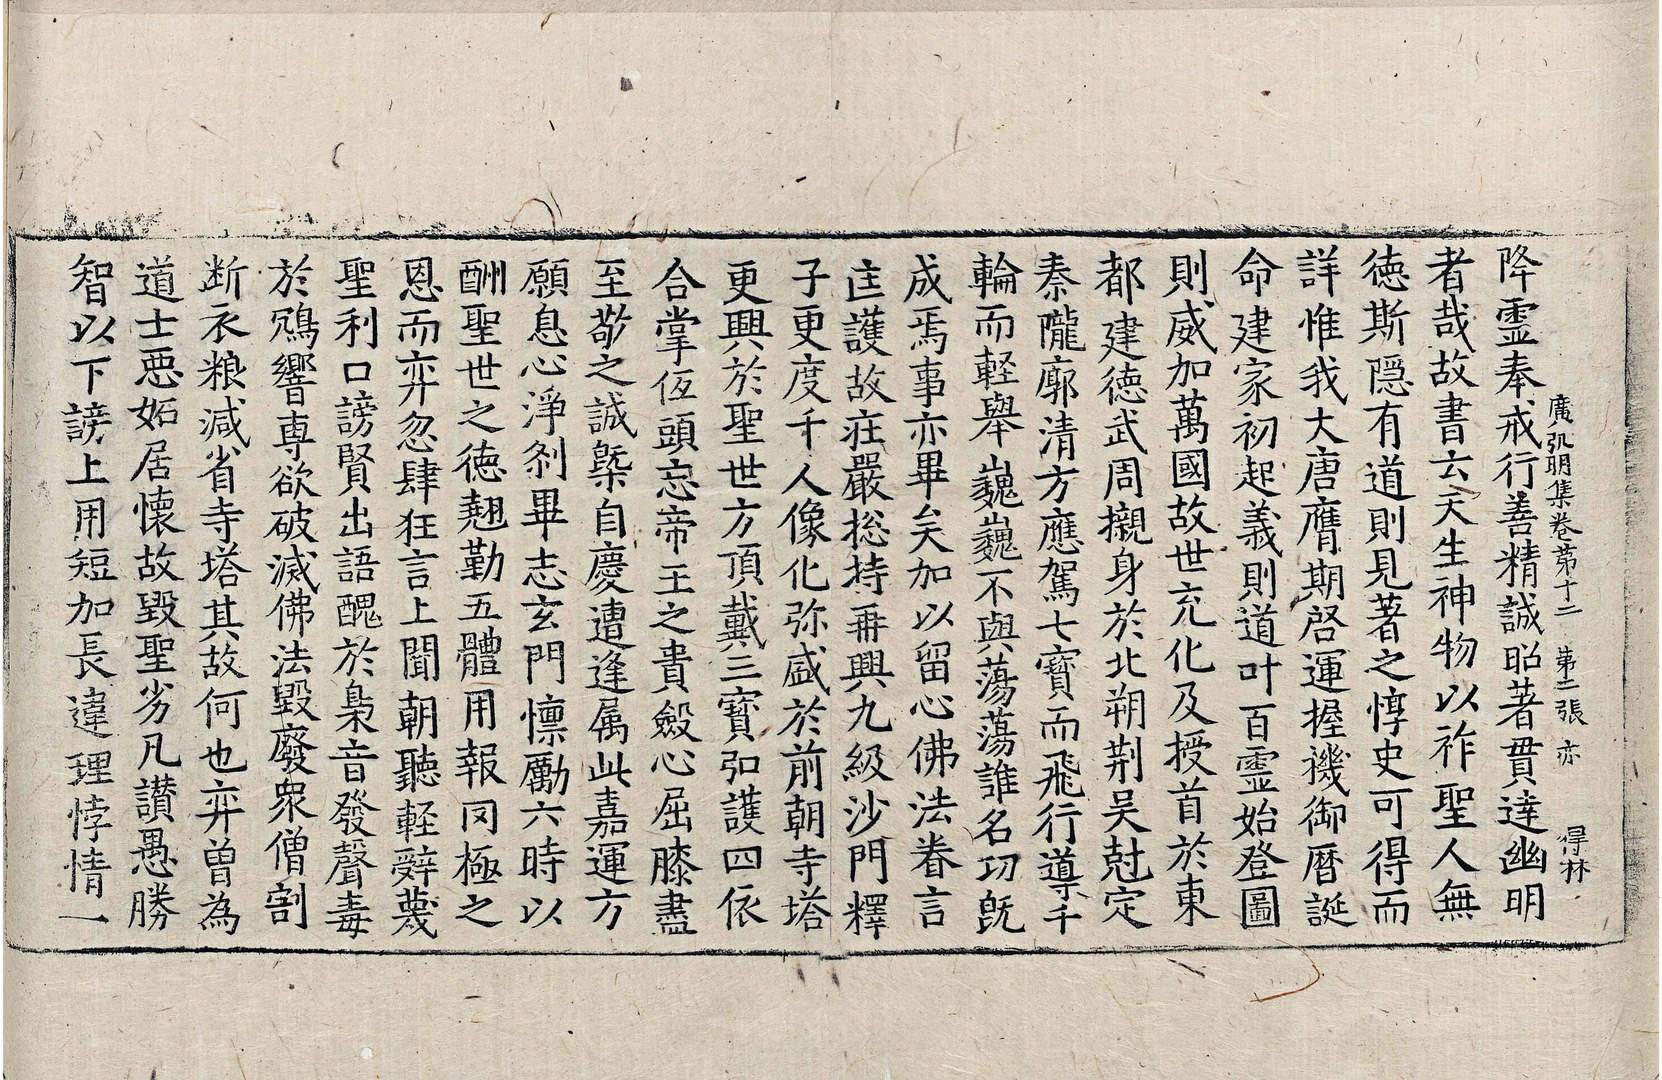 廣弘明集卷第十二 第二張 亦 得林
降靈奉戒行善精誠昭著貫達幽明
者哉故書云天生神物以祚聖人無
徳斯隠有道則見著之惇史可得而
詳惟我大唐膺期啓運握機御曆誕
命建家初起義則道叶百靈始登圖
則威加萬國故世充化及授首於東
都建德武周櫬身於北朔荆吴尅定
秦隴廓清方應駕七寶而飛行導千
輪而輕舉巍巍不與蕩蕩誰名功旣
成焉事亦畢矣加以留心佛法眷言
匡護故莊嚴捴持再興九級沙門釋
子更度千人像化弥盛於前朝寺塔
更興於聖世方頂戴三寶弘護四依
合掌伍頭忘帝王之貴斂心屈膝盡
至敬之誠槩自慶遭逢属此嘉運方
願息心淨刹畢志玄門懍勵六時以
酬聖世之徳翹勤五體用報罔極之
恩而弈忽肆狂言上聞朝聽輕辤蔑
聖利口謗賢出語醜於梟音發聲毒
於鴆響専欲破滅佛法毀廢衆僧割
断衣粮減省寺塔其故何也弈曽為
道士惡妬居懐故毀聖劣凡讃愚勝
智以下謗上用短加長違理悖情一